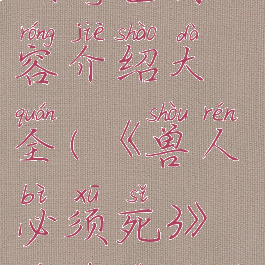 róng jiè shào dà
容介绍大
quán shòu rén
全(《兽人
bì xū sǐ
必须死3》